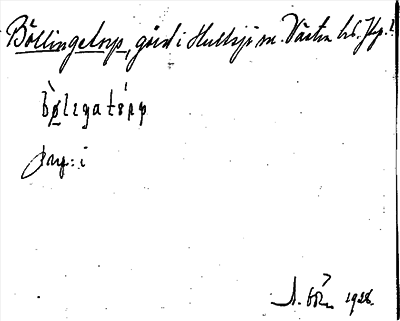 Böllingetorp, gård i Hultsjö sn. Västra hd. Jkp. l.
bø̀lıgatórp
prep.: i
1928.